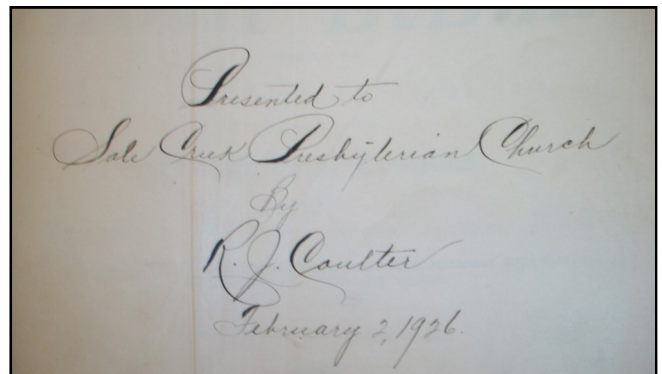 Presented to
Sale Creek Presbyterian Church
By
R. J. Coulter
February 2, 1926.